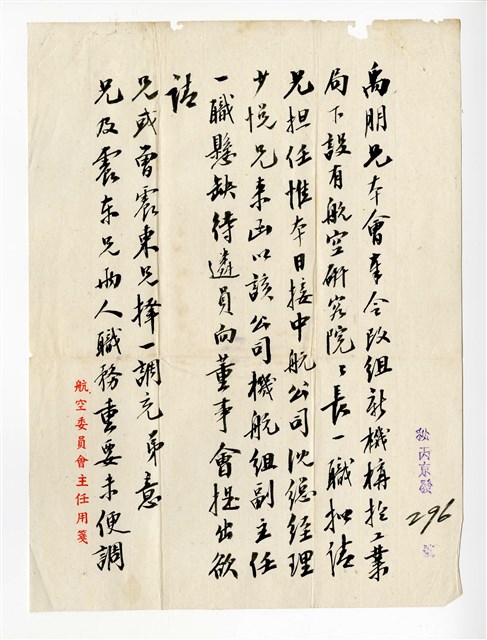 禹朋兄本會奉令改組新機構於工業
局下設有航空研究院〻長一職擬請
兄担任惟本日接中航公司沈總經理
少悅兄來函以該公司機航組副主任
一職懸缺待遴員向董事會提出欲
請
兄或曹震東兄擇一調充弟意
兄及震东兄兩人職務重要未便調
航空委員會主任用箋
秘丙京發
296
號